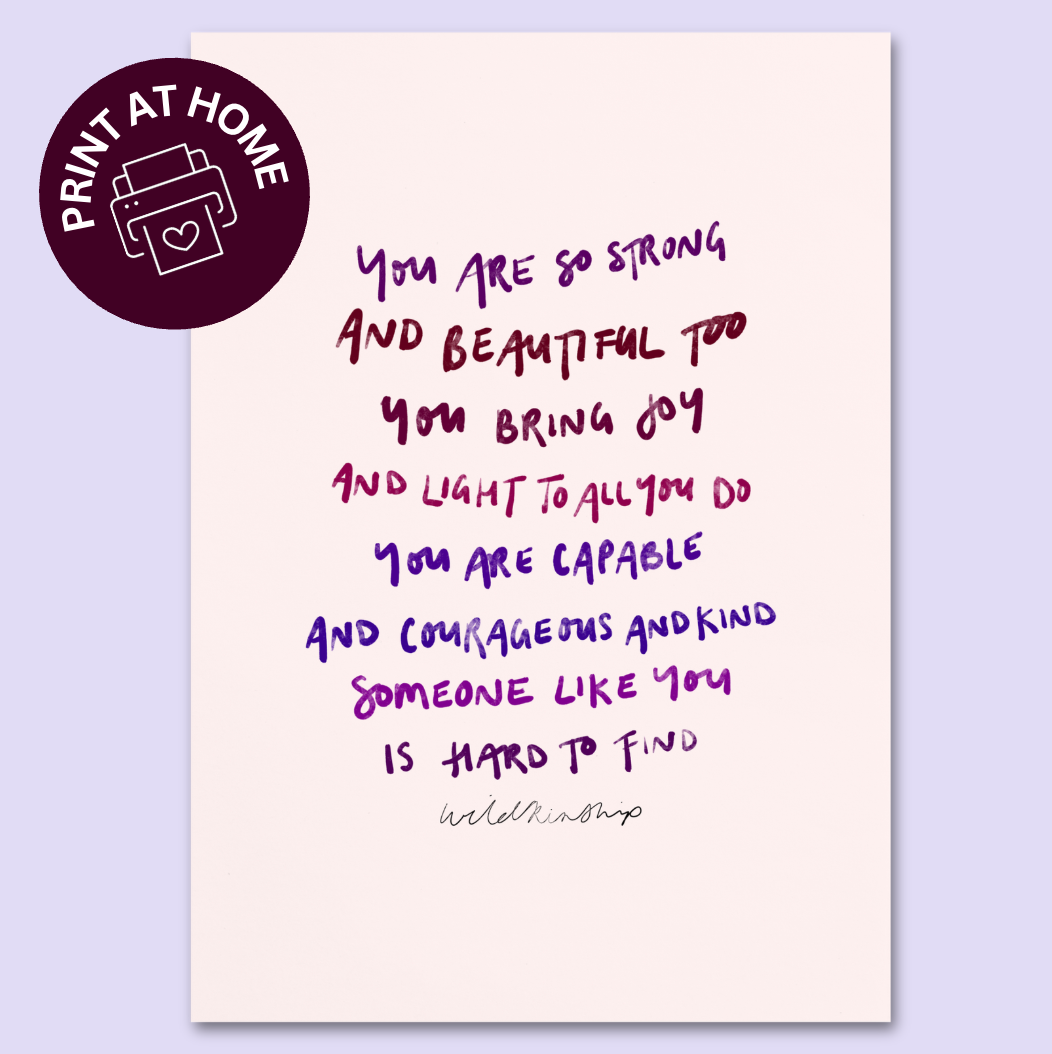 PRINT AT HOME
YOU ARE SO STRONG
AND BEAUTIFUL TOO
YOU BRING JOY
AND LIGHT TO ALL YOU DO
YOU ARE CAPABLE
AND COURAGEOUS AND KIND
SOMEONE LIKE YOU
IS HARD TO FIND
wildkinship